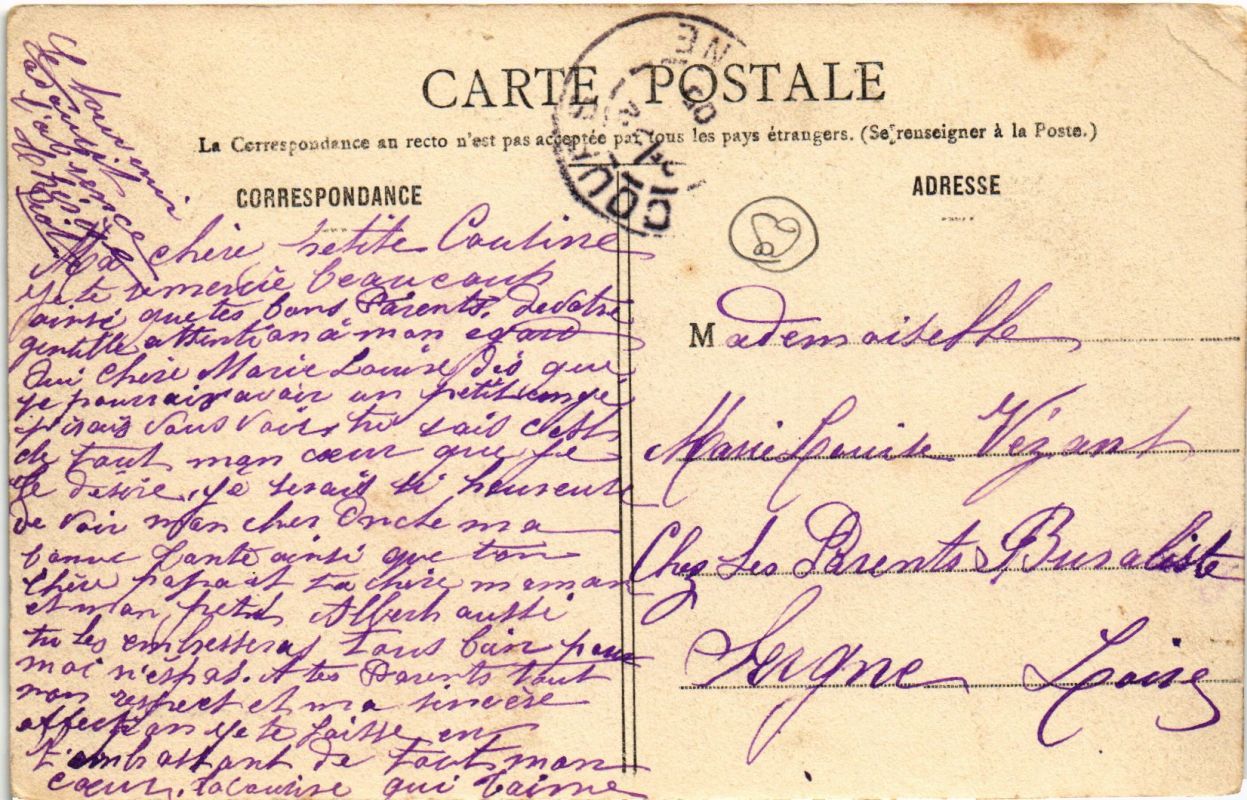 CARTE POSTALE
La Correspondance au recto n'est pas acceptée par tous les pays étrangers. (Se renseigner à la Poste.)
CORRESPONDANCE
Ma chère petite Couline
Je te remercie beaucoup
ainsi que tes bons Parents, de votre
gentille attention à mon egard
Oui chère Marie Louise dès que
je pourrai avoir un petit congé
j'irais vous voir, tu sais c'est
de tout mon cœur que je
le desire, je serais si heureuse
de voir mon cher Oncle ma
bonne Tante ainsi que ton
chère papa et ta chère maman
et mon petit Albert aussi
tu les embrasseras tous bien pour
moi n'espas. A tes Parents tout
mon respect et ma sincère
affection je te laisse en
t'embrassant de tout mon
cœur. ta couline qui t'aime
ADRESSE
Mademoiselle
Marie Louise Vézant
Chez Ses Parents Buraliste
Loire